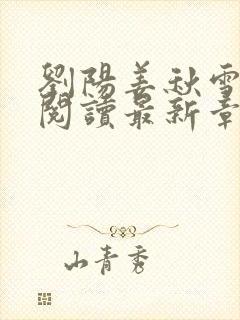 劉陽姜秋雪
閱讀最新章
山青秀